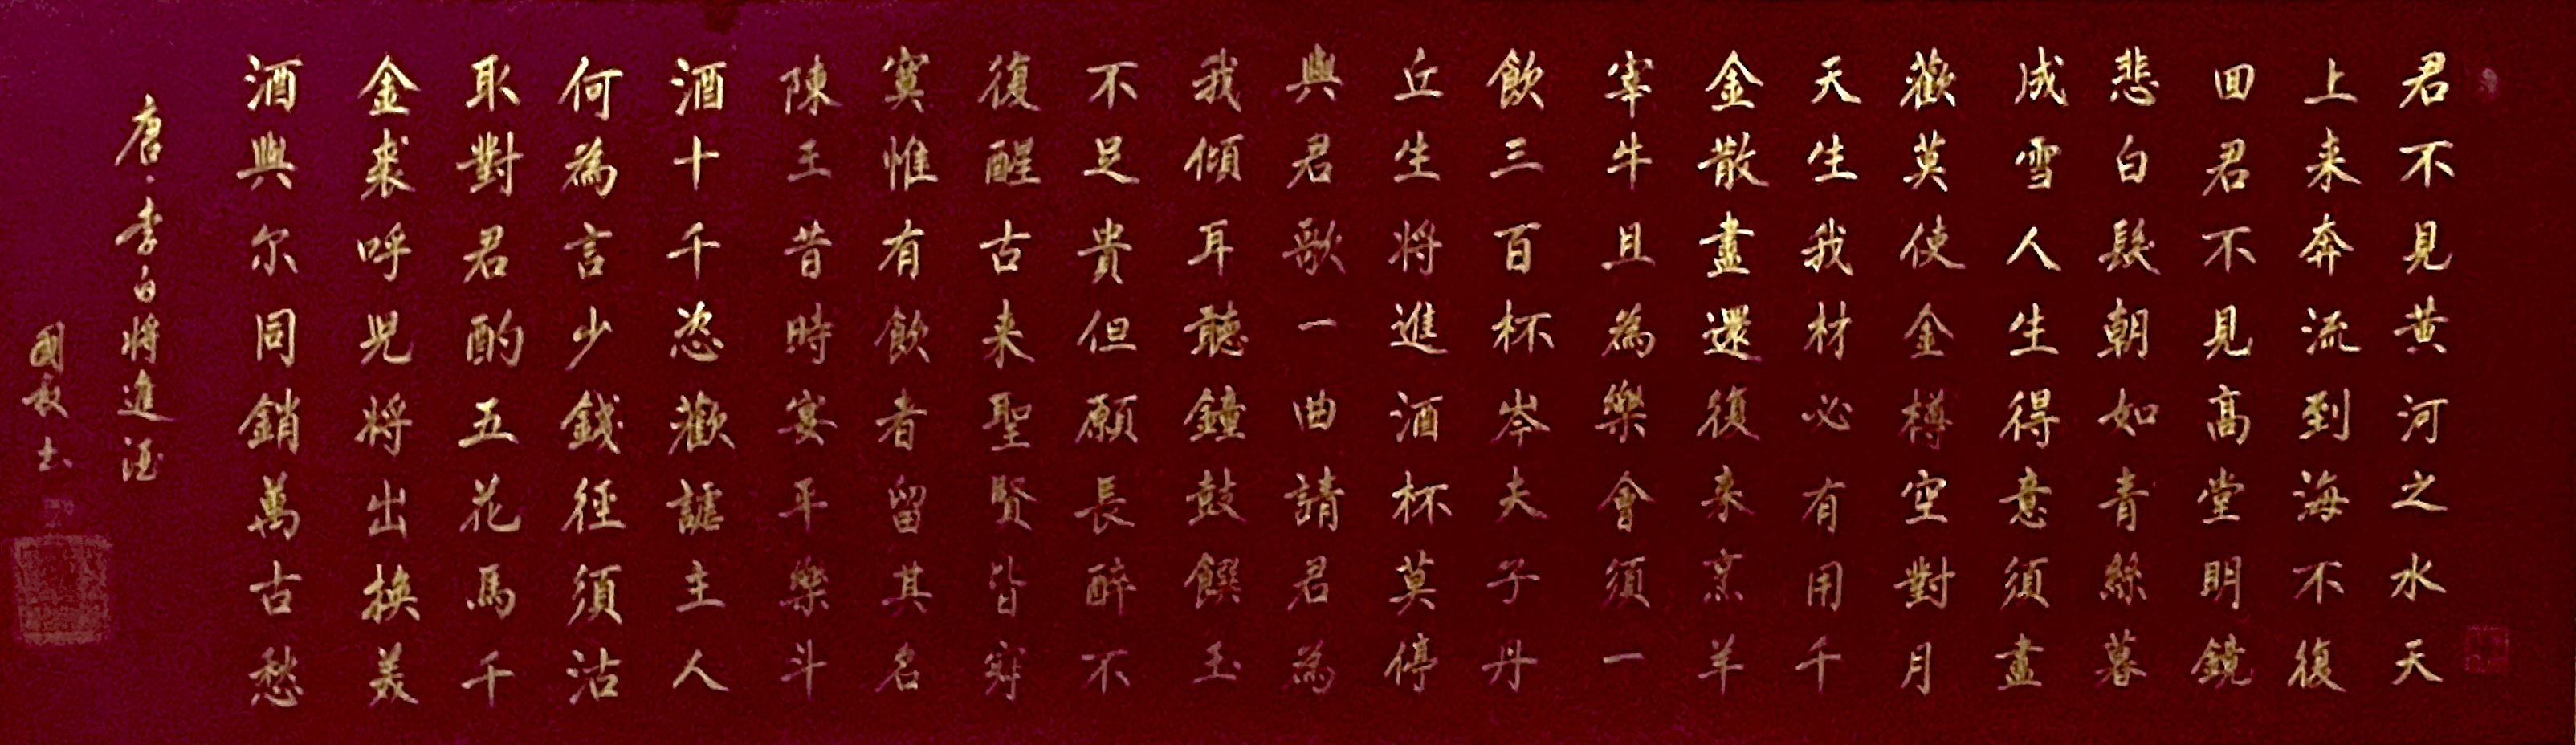 君不見黃河之水天
上来奔流到海不復
回君不見高堂明鏡
悲白髮朝如青絲暮
成雪人生得意須盡
歡莫使金樽空對月
天生我材必有用千
金散盡還復来烹羊
宰牛且為樂會須一
飲三百杯岑夫子丹
丘生将進酒杯莫停
與君歌一曲請君為
我傾耳聽鐘鼓饌玉
不足貴但願長醉不
復醒古来聖賢皆寂
寞惟有飲者留其名
陳王昔時宴平樂斗
酒十千恣歡謔主人
何為言少錢徑須沽
取對君酌五花馬千
金裘呼児将出換美
酒與尔同銷萬古愁
唐·李白将進酒
國敏书